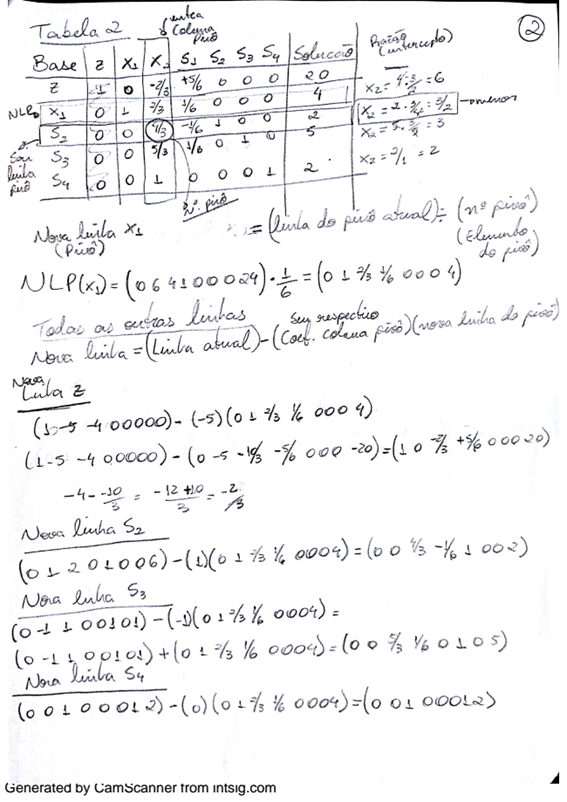 Tabela 2
entra
Coluna
Pivô
2
Base Z X₁ X₂ S₁ S₂ S₃ S₄ Solução
Razão
(intercepto)
Z 1 0 -2/3 +5/6 0 0 0 20
NLP X₁ 0 1 2/3 1/6 0 0 0 4
S₂ 0 0 4/3 -1/6 1 0 0 2
S₃ 0 0 5/3 1/6 0 1 0 5
S₄ 0 0 1 0 0 0 1 2
Sai
linha
pivô
Nº. pivô
X₂ = 4·3/2 = 6
X₂ = 2·3/4 = 3/2 → menor
X₂ = 5·3/5 = 3
X₂ = 2/1 = 2
Nova linha X₁ = (linha do pivô atual) ÷ (nº pivô)
(Pivô)
(Elemento
do pivô)
NLP(x₁) = (0 6 4 1 0 0 0 24) · 1/6 = (0 1 2/3 1/6 0 0 0 4)
Todas as outras linhas
Nova linha = (Linha atual) - (Seu respectivo Coef. coluna pivô)(nova linha do pivô)
Nova
Linha Z
(1 -5 -4 0 0 0 0 0) - (-5)(0 1 2/3 1/6 0 0 0 4)
(1 -5 -4 0 0 0 0 0) - (0 -5 -10/3 -5/6 0 0 0 -20) = (1 0 -2/3 +5/6 0 0 0 20)
-4 - -10/3 = -12+10/3 = -2/3
Nova linha S₂
(0 1 2 0 1 0 0 6) - (1)(0 1 2/3 1/6 0 0 0 4) = (0 0 4/3 -1/6 1 0 0 2)
Nova linha S₃
(0 -1 1 0 0 1 0 1) - (-1)(0 1 2/3 1/6 0 0 0 4) =
(0 -1 1 0 0 1 0 1) + (0 1 2/3 1/6 0 0 0 4) = (0 0 5/3 1/6 0 1 0 5)
Nova linha S₄
(0 0 1 0 0 0 1 2) - (0)(0 1 2/3 1/6 0 0 0 4) = (0 0 1 0 0 0 1 2)
Generated by CamScanner from intsig.com